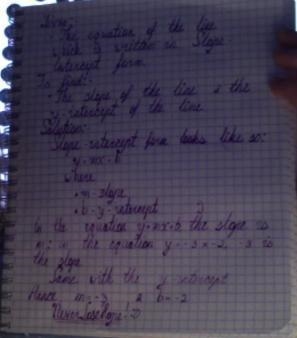 Given:-
The equation of the line
which is written in Slope
Intercept form
To find:-
• The slope of the line & the
y-intercept of the line
Solution:-
Slope-intercept form looks like so:
• y=mx+b
where
• m-slope
• b-y-intercept
In the equation y=mx+b the slope is
m; in the equation y=-3x-2, -3 is
the slope
Same with the y-intercept
Hence, m=-3 & b=-2
NeverLoseHope!:)